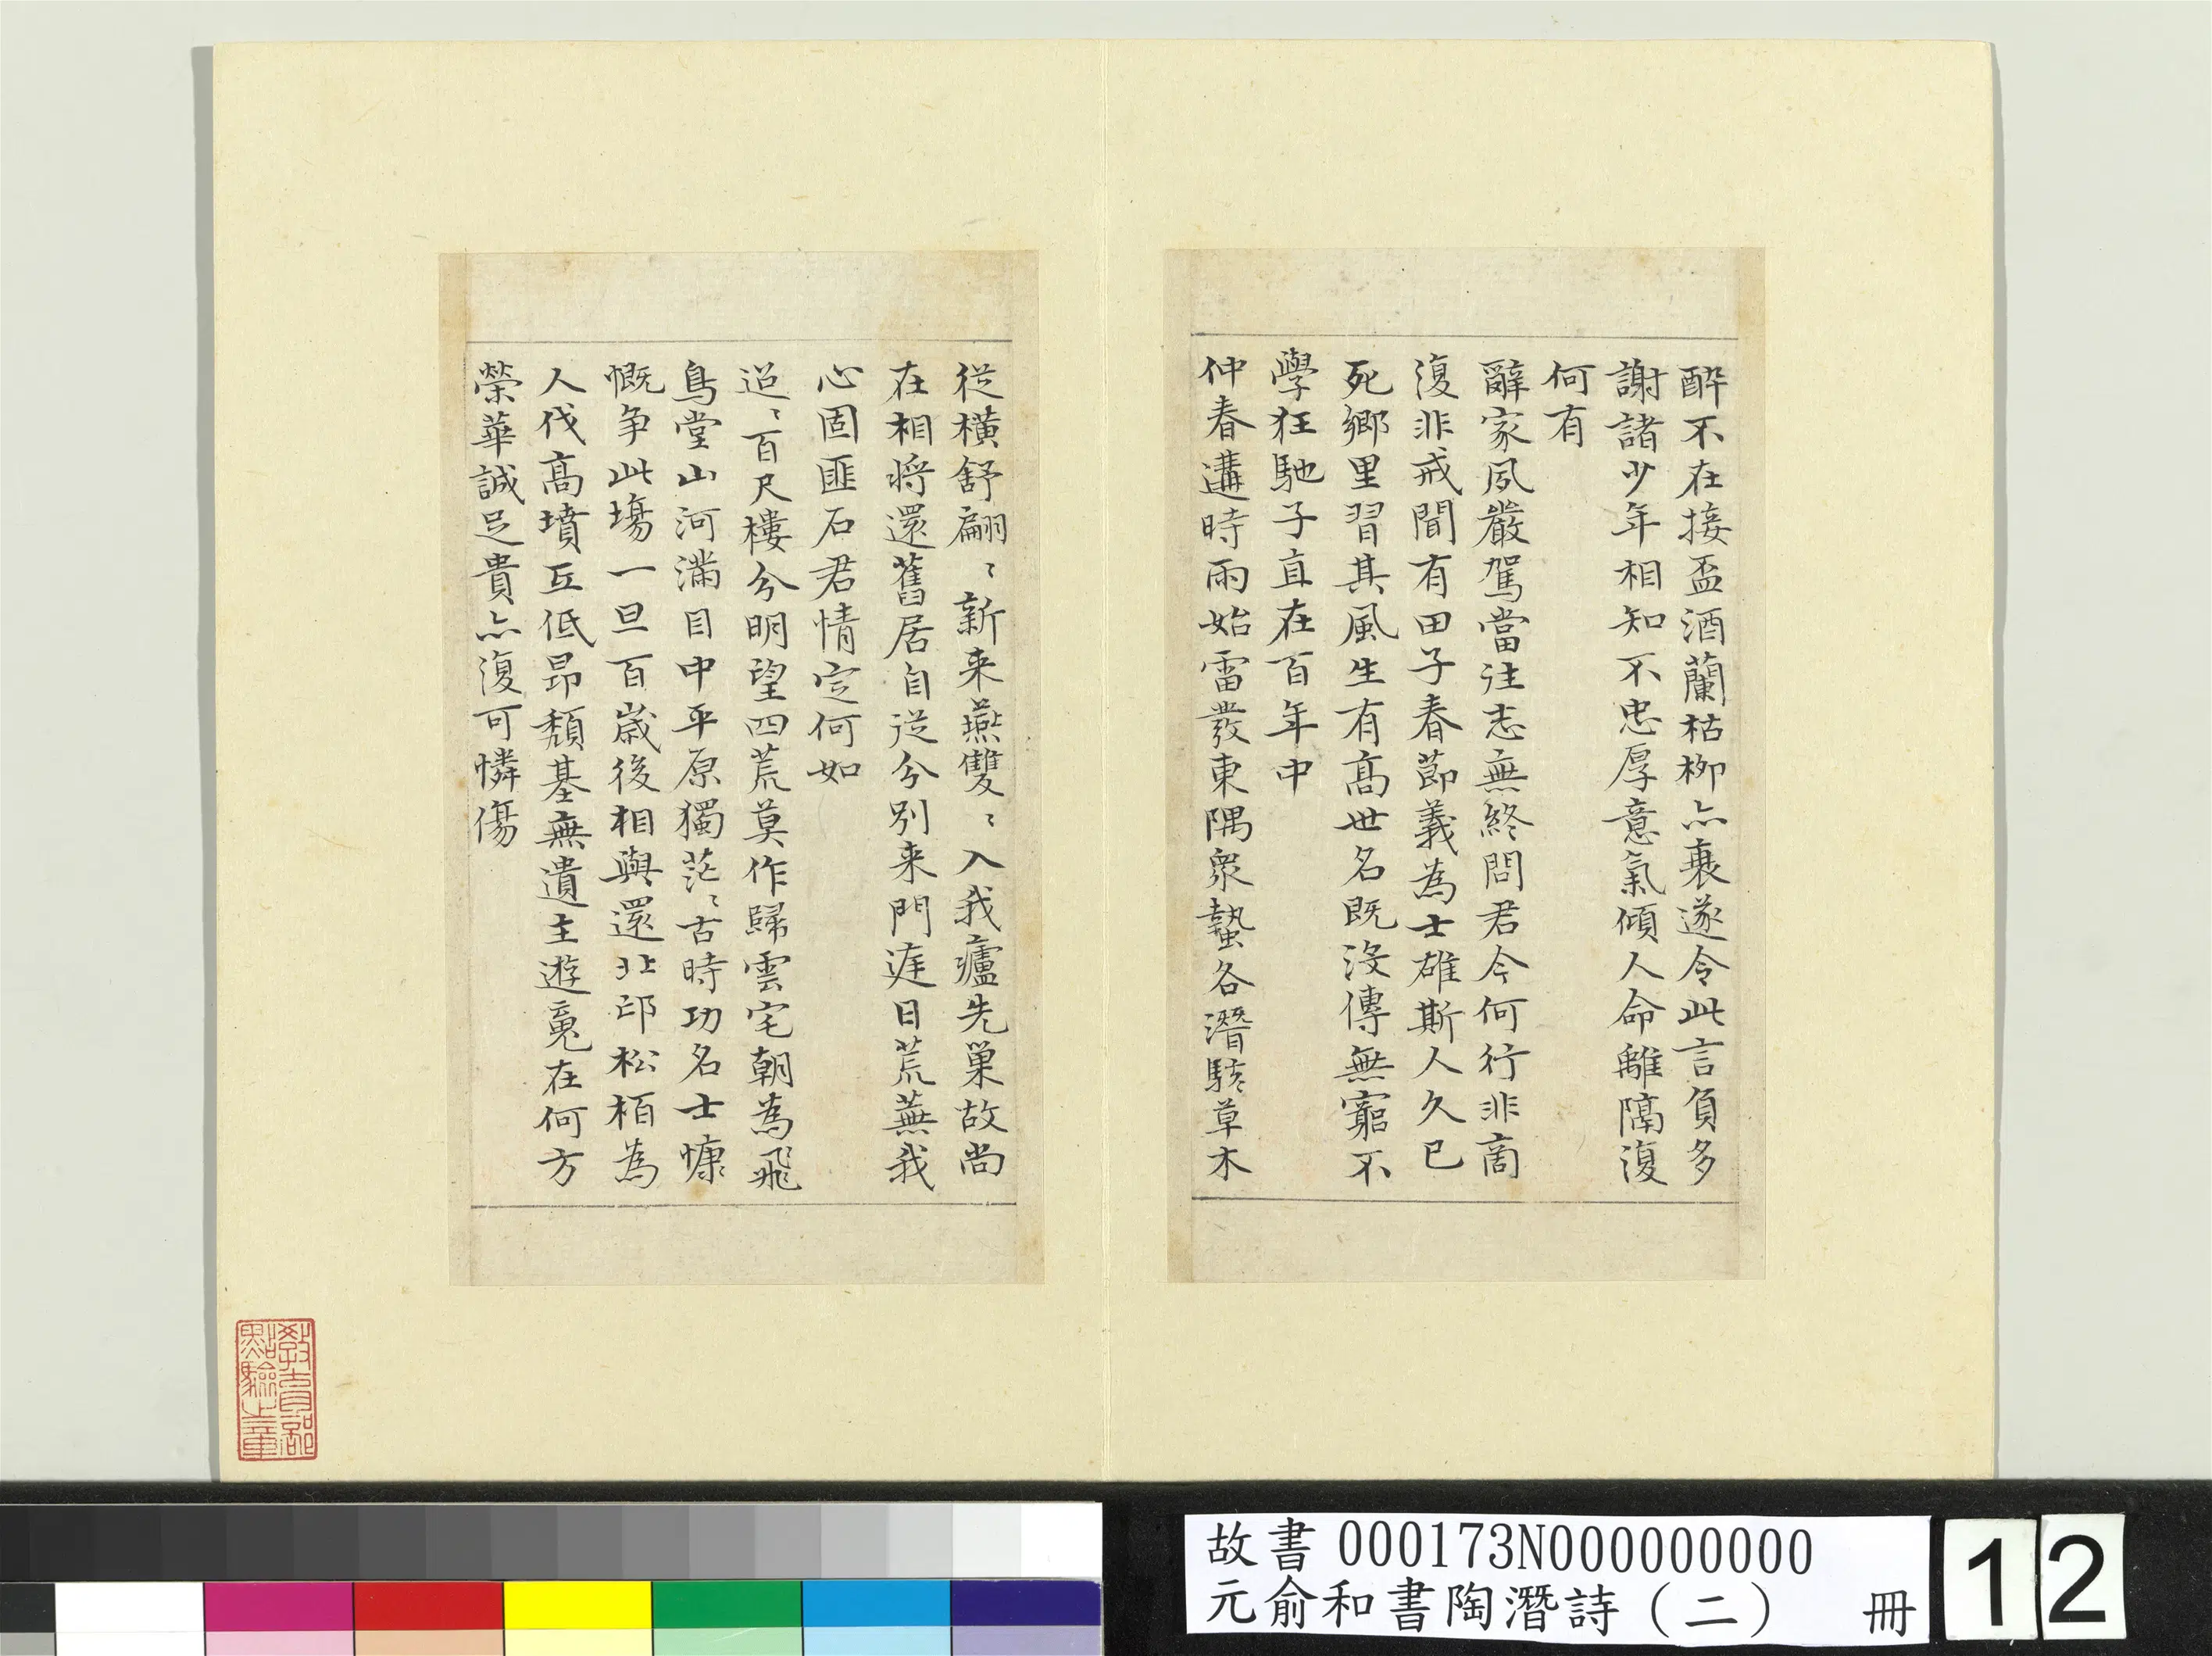 醉不在接盃酒蘭枯柳亦衰遂令此言負多
謝諸少年相知不忠厚意氣傾人命離隔復
何有
辭家夙嚴駕當往志無終問君今何行非商
復非戎聞有田子春節義為士雄斯人久已
死鄉里習其風生有高世名既沒傳無窮不
學狂馳子直在百年中
仲春遘時雨始雷發東隅衆蟄各潛駭草木
從橫舒翩〻新来燕雙〻入我廬先巢故尚
在相將還舊居自從分別来門庭日荒蕪我
心固匪石君情定何如
迢〻百尺樓分明望四荒莫作歸雲宅朝為飛
鳥堂山河滿目中平原獨茫〻古時功名士慷
慨争此場一旦百歲後相與還北邙松栢為
人伐高墳互低昂頹基無遺主遊魂在何方
榮華誠足貴亦復可憐傷
教育部
點驗之章
故書 000173N000000000
元俞和書陶潛詩（二） 冊
12